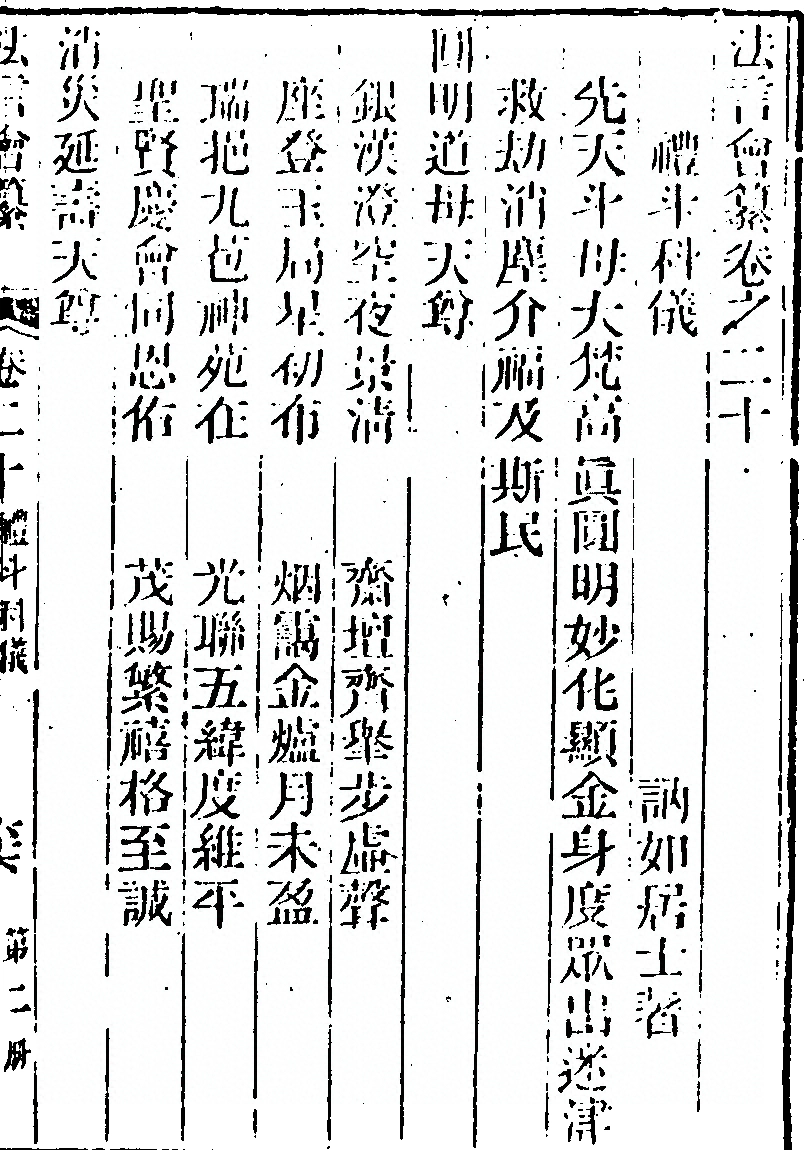 法言會纂卷之二十
禮斗科儀 訥如居士著
先天斗母大梵高真圓明妙化顯金身度眾出迷津
救劫消塵介福及斯民
圓明道母天尊
銀漢澄空夜景清 齋壇齊舉步虛聲
座登玉局星初布 烟靄金爐月未盈
瑞挹九苞神苑在 光聯五緯度維平
聖賢慶會同恩佑 茂賜繁禧格至誠
消災延壽天尊
法言會纂 卷二十 禮斗科儀 第二册